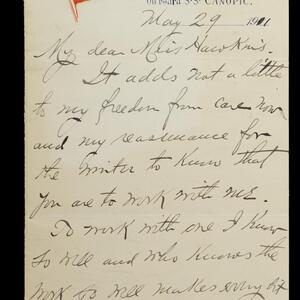 On board S.S. "CANOPIC."
May 29 1911
My dear Miss Hawkins.
It adds not a little
to my freedom from care now
and my reassurance for
the Winter to know that
you are to work with me.
To work with one I know
so well and who knows the
work so well makes every bit